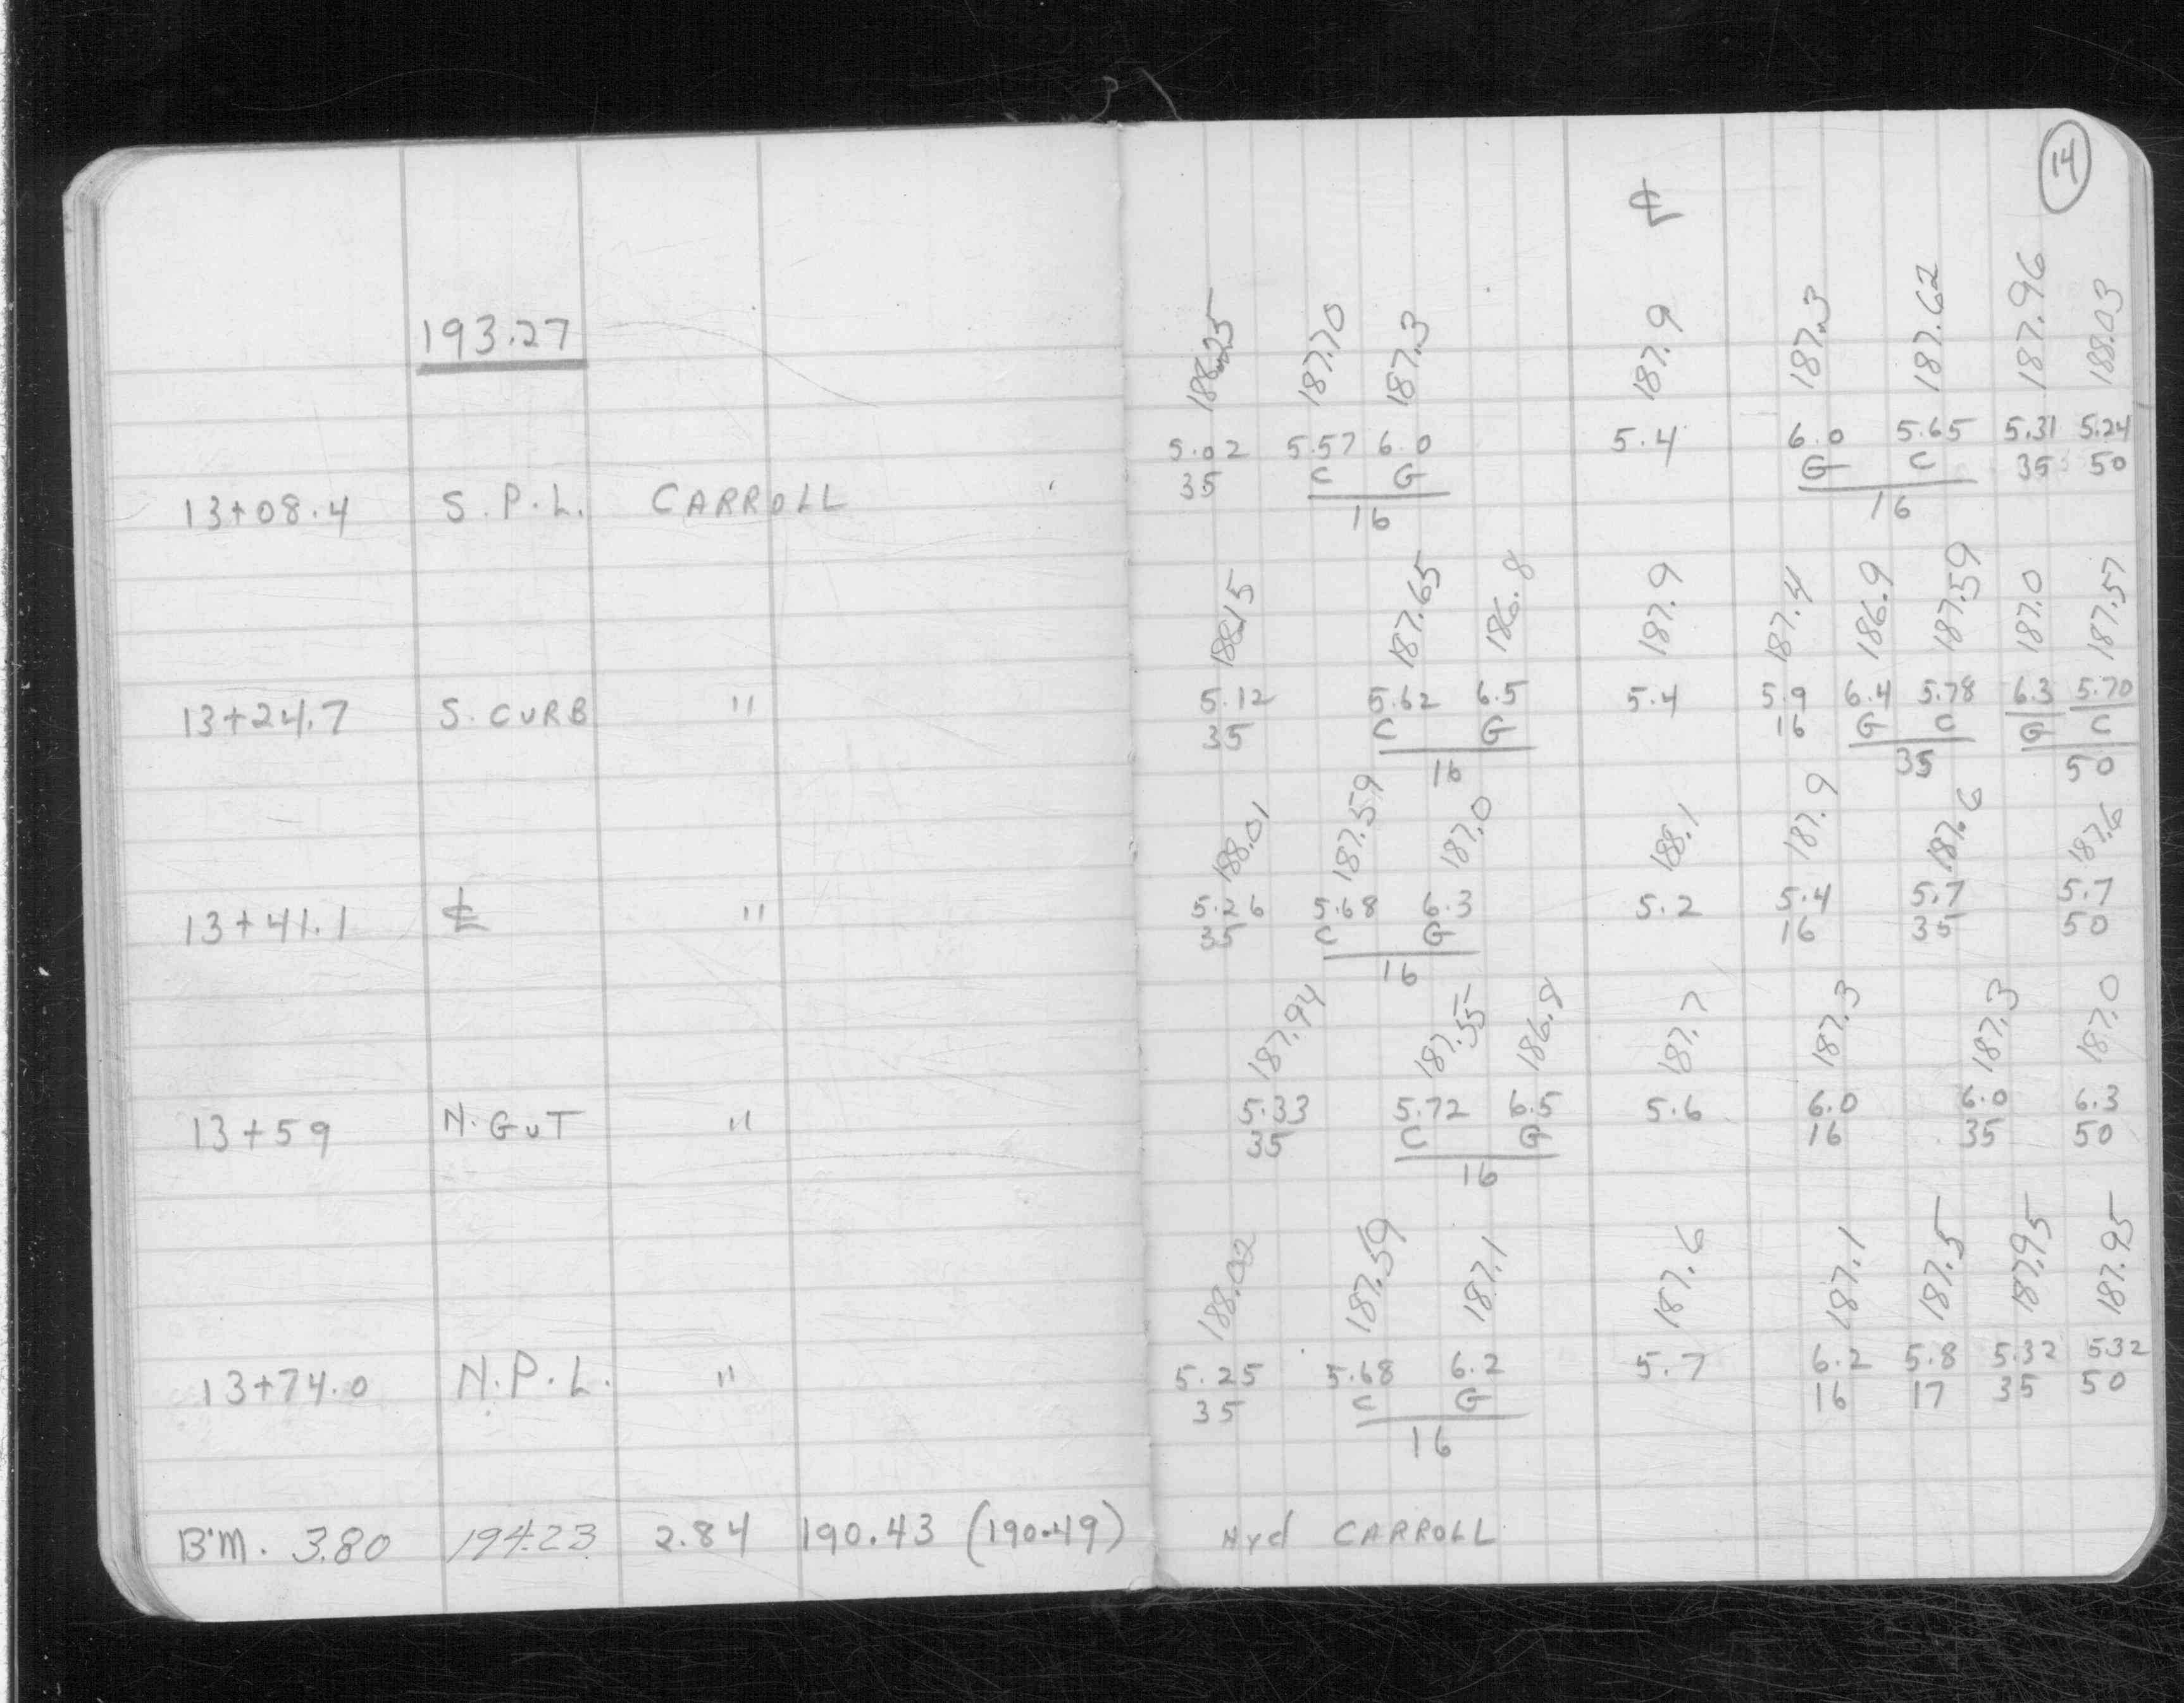 14
℄
193.27
188.25 187.70 187.3 187.9 187.3 187.62 187.96 188.03
5.02 5.57 6.0 5.4 6.0 5.65 5.31 5.24
35 C G G C 35 50
13+08.4 S.P.L. CARROLL 16 16
188.15 187.65 186.8 187.9 187.4 186.9 187.59 187.0 187.57
5.12 5.62 6.5 5.4 5.9 6.4 5.78 6.3 5.70
13+24.7 S. CURB " 35 C G 16 G C G C
16 35 50
188.01 187.59 187.0 188.1 187.9 187.6 187.6
5.26 5.68 6.3 5.2 5.4 5.7 5.7
13+41.1 ℄ " 35 C G 16 35 50
16
187.94 187.55 186.8 187.7 187.3 187.3 187.0
5.33 5.72 6.5 5.6 6.0 6.0 6.3
13+59 N. GUT " 35 C G 16 35 50
16
188.02 187.59 187.1 187.6 187.1 187.5 187.95 187.95
5.25 5.68 6.2 5.7 6.2 5.8 5.32 5.32
13+74.0 N.P.L. " 35 C G 16 17 35 50
16
B.M. 3.80 194.23 2.84 190.43 (190.49) Hyd CARROLL